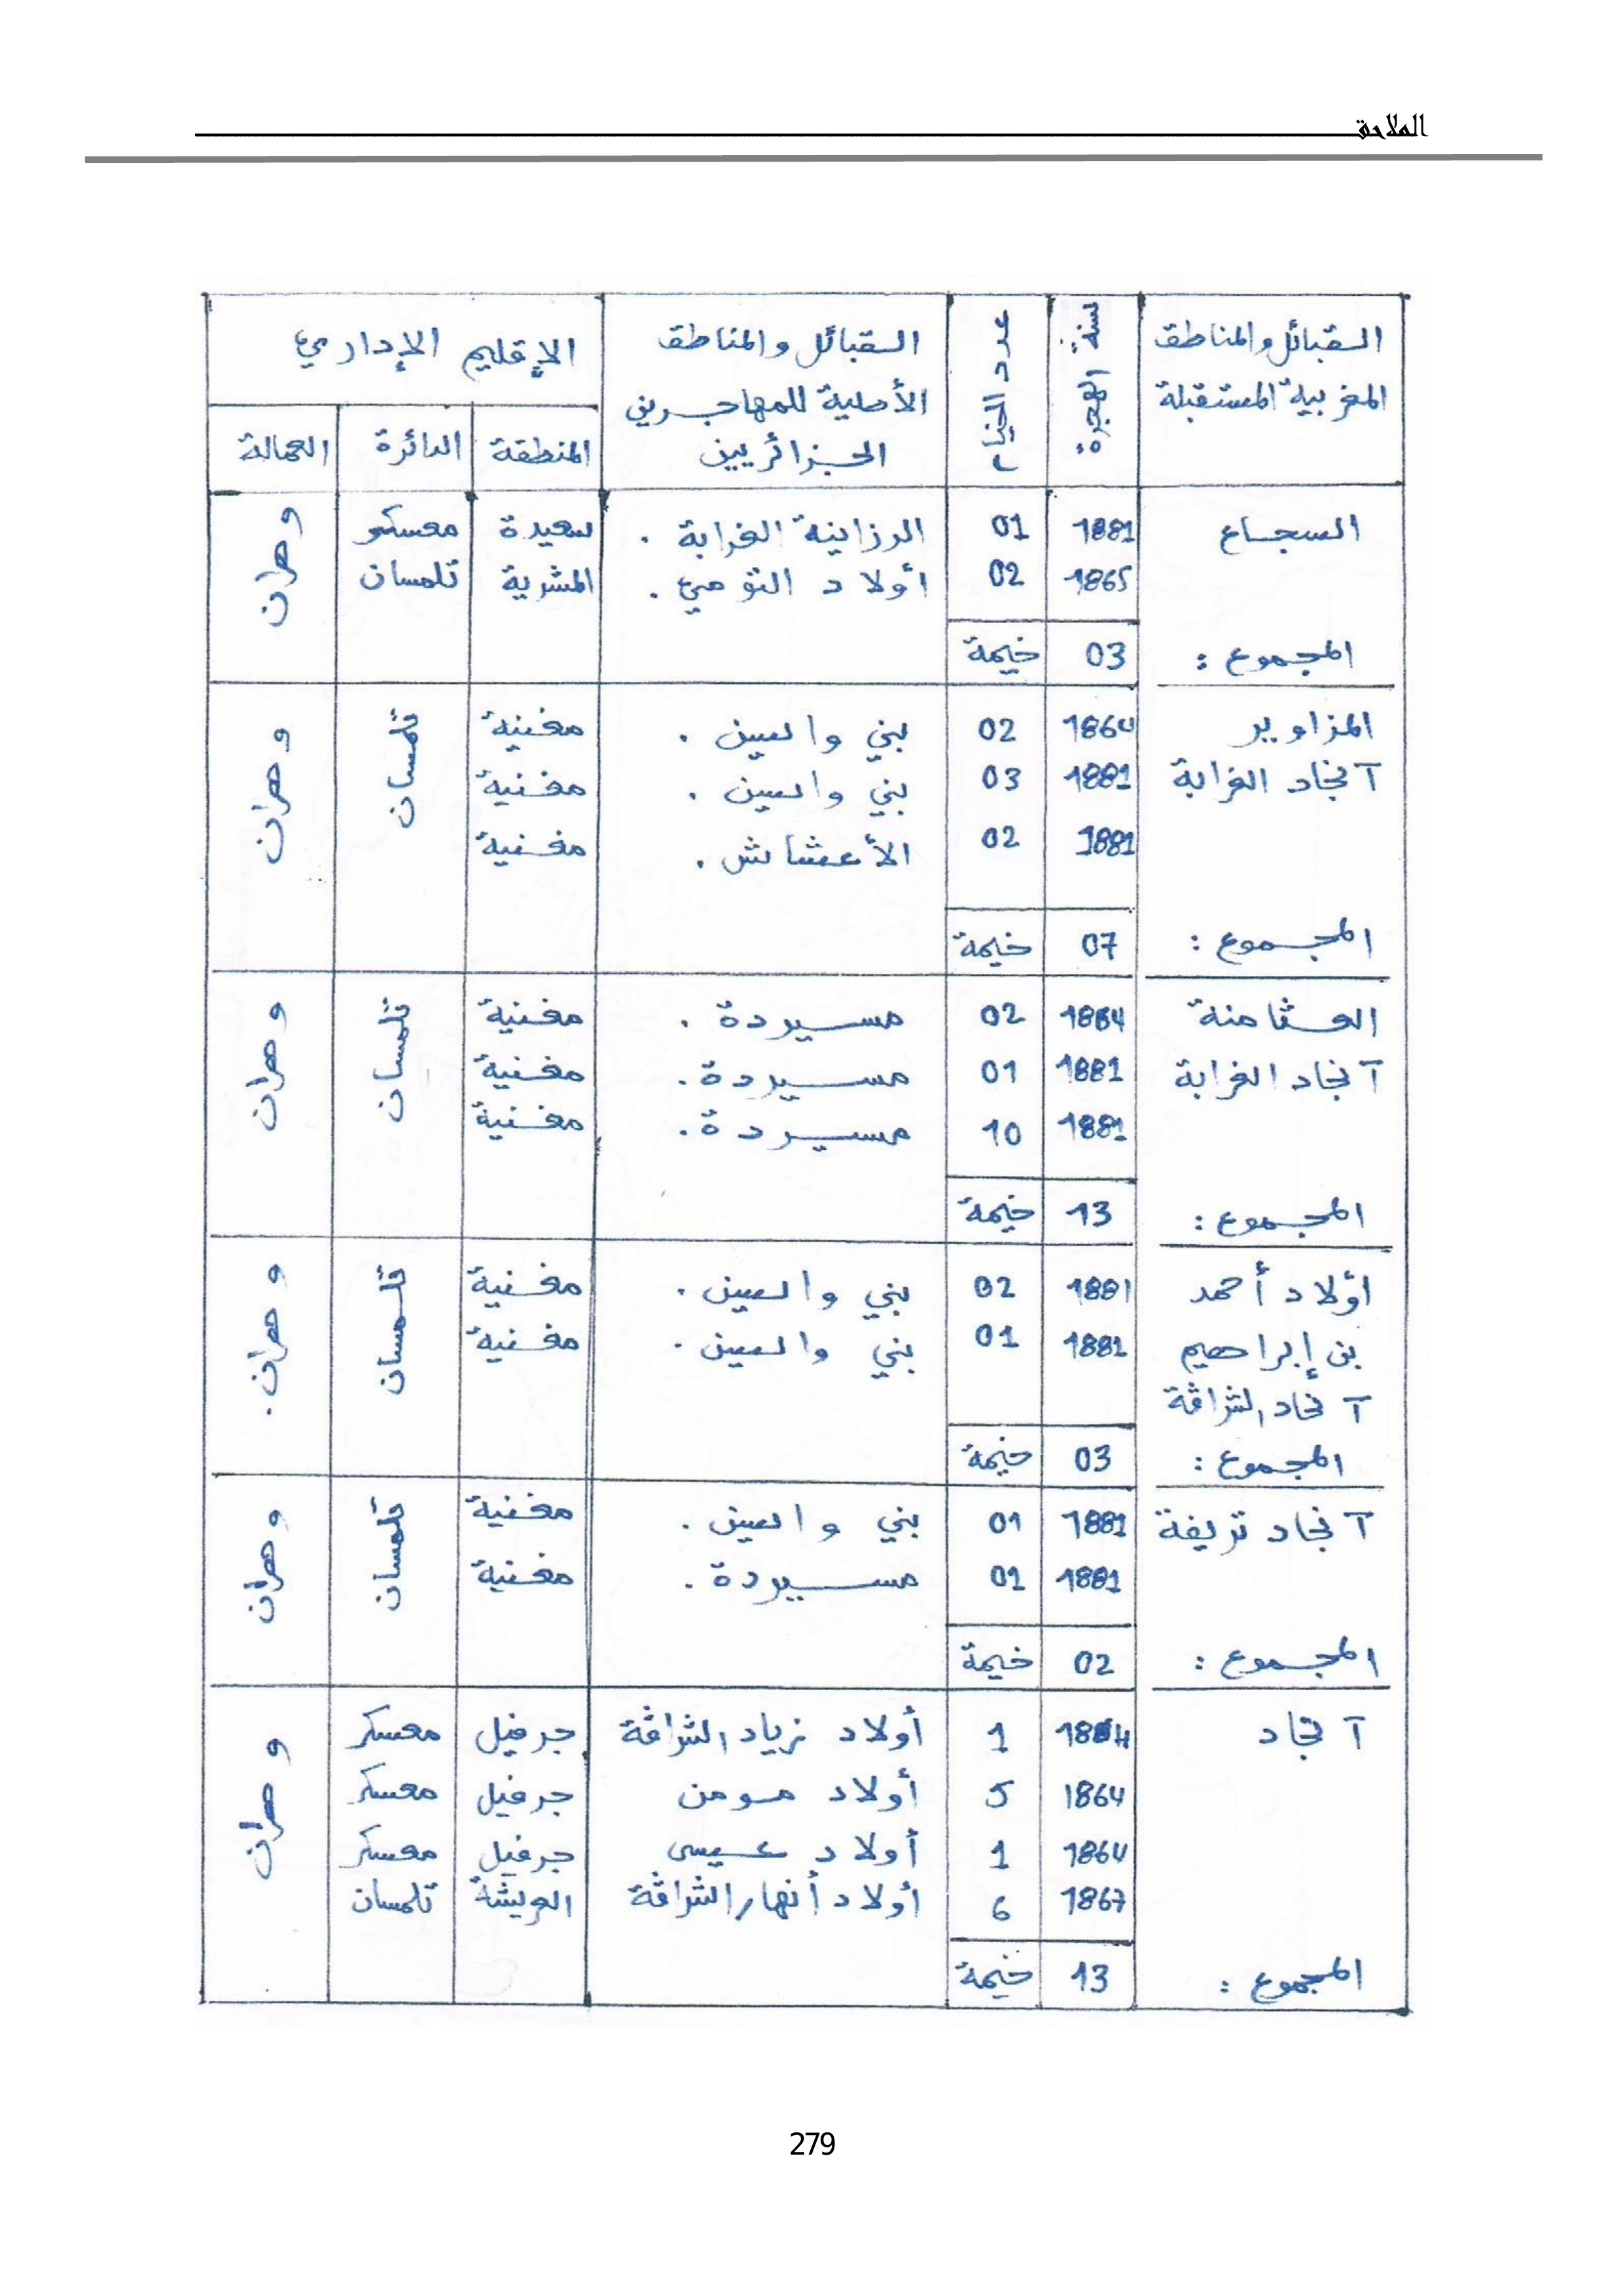 الملاحق
القبائل والمناطق المغربية المستقبلة | سنة الهجرة | عدد الخيام | القبائل والمناطق الأصلية للمهاجرين الجزائريين | الإقليم الإداري
المنطقة | الدائرة | العمالة
السجاع | 1881 | 01 | الرزاينة الغرابة . | سعيدة | معسكر | وهران
1865 | 02 | أولاد التومي . | المشرية | تلمسان
المجموع : | 03 | خيمة
المزاوير | 1864 | 02 | بني واسين . | مغنية | تلمسان | وهران
آنجاد الغرابة | 1881 | 03 | بني واسين . | مغنية
1881 | 02 | الأعشاش . | مغنية
المجموع : | 07 | خيمة
العثامنة | 1864 | 02 | مسيردة . | مغنية | تلمسان | وهران
آنجاد الغرابة | 1881 | 01 | مسيردة . | مغنية
1881 | 10 | مسيردة . | مغنية
المجموع : | 13 | خيمة
أولاد أحمد | 1881 | 02 | بني واسين . | مغنية | تلمسان | وهران .
بن إبراهيم | 1881 | 01 | بني واسين . | مغنية
آنجاد الشراقة
المجموع : | 03 | خيمة
آنجاد تريفة | 1881 | 01 | بني واسين . | مغنية | تلمسان | وهران
1881 | 01 | مسيردة . | مغنية
المجموع : | 02 | خيمة
آنجاد | 1864 | 1 | أولاد زياد الشراقة | جرفيل | معسكر | وهران
1864 | 5 | أولاد مومن | جرفيل | معسكر
1864 | 1 | أولاد عيسى | جرفيل | معسكر
1867 | 6 | أولاد أنهار الشراقة | العريشة | تلمسان
المجموع : | 13 | خيمة
279